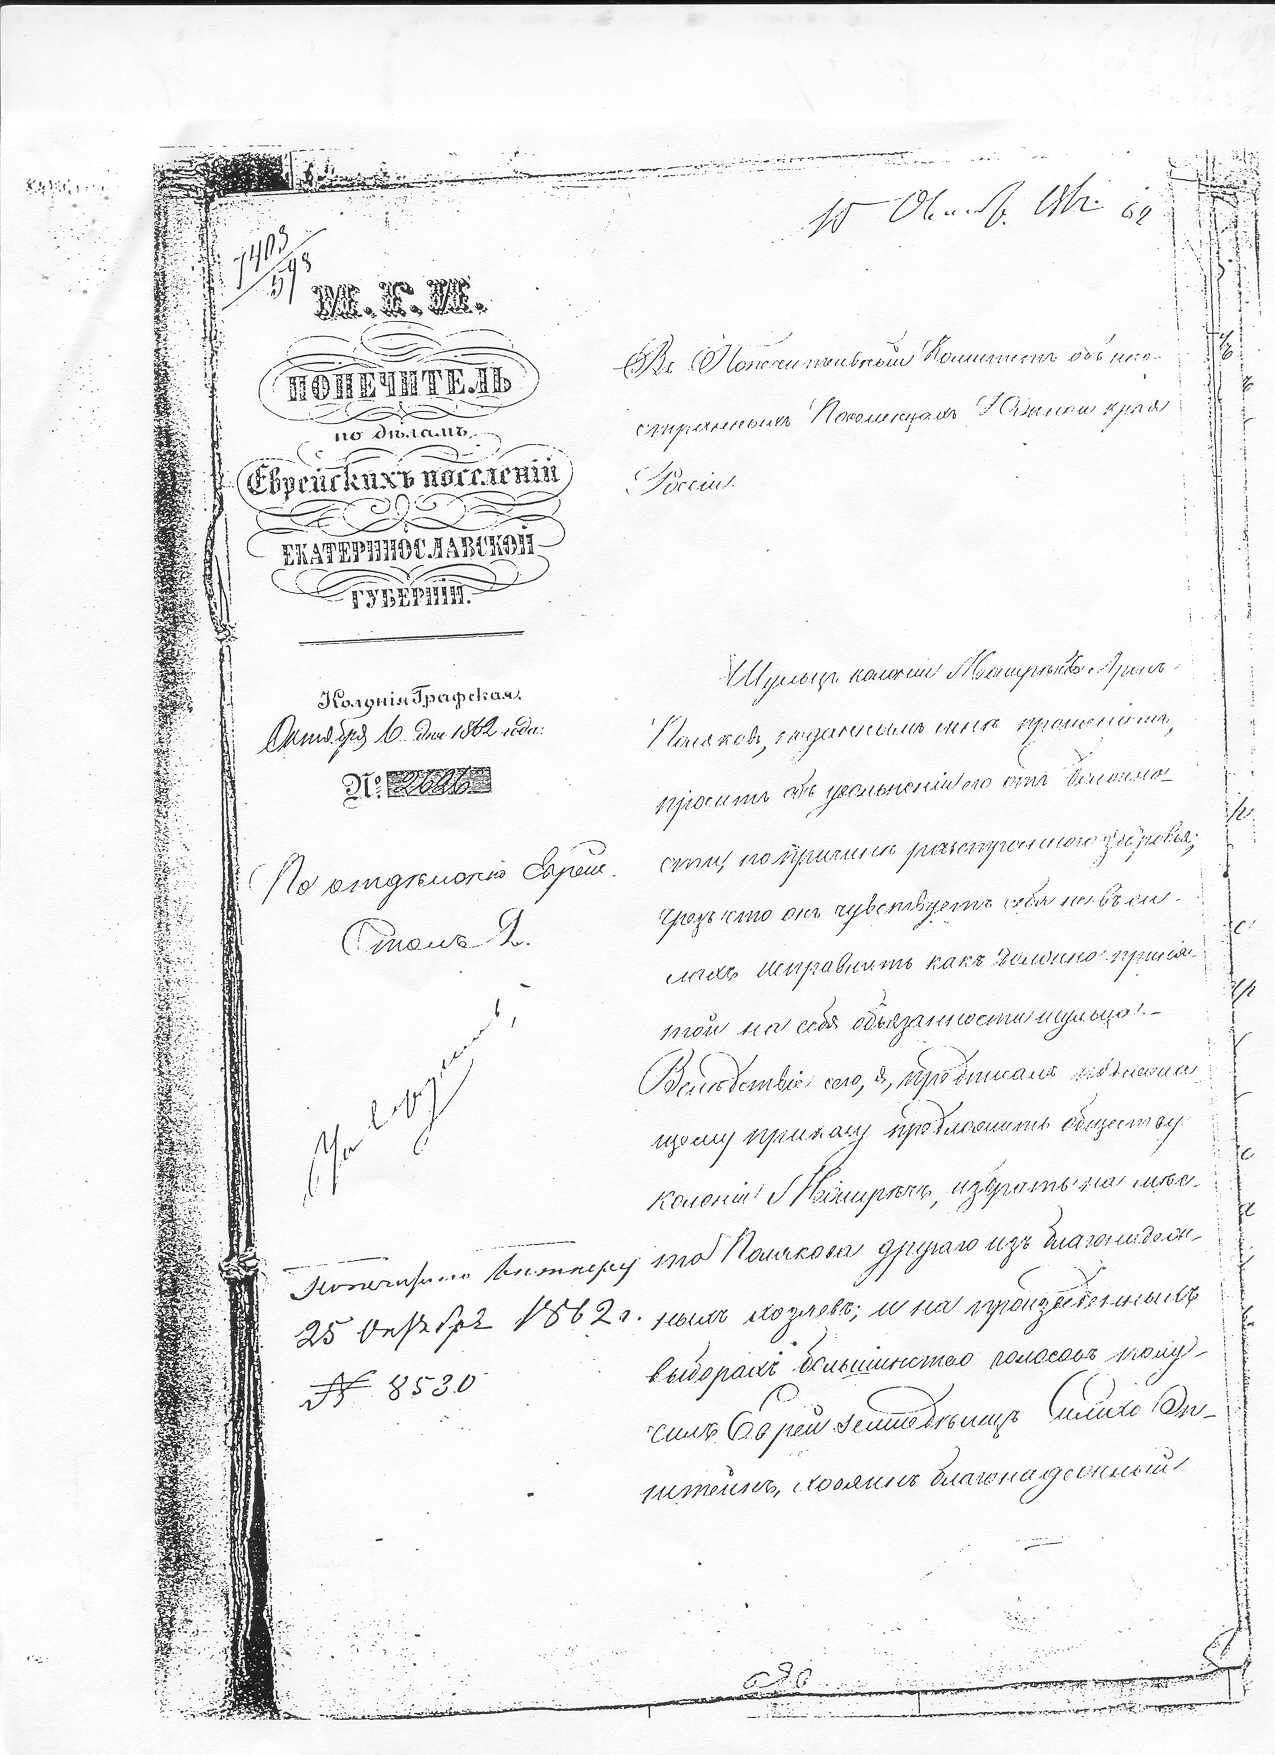 7403
593
М. Г. И.
ПОПЕЧИТЕЛЬ
по дѣламъ
Еврейскихъ поселеній
ЕКАТЕРИНОСЛАВСКОЙ
ГУБЕРНІИ.
Колонія Графская.
Октября 6 дня 1862 года.
№ 2626
По отдѣленію Еврейс.
Столъ 2.
25 октября 1862 г.
№ 8530
62
Въ Попечительный Комитетъ объ ино-
странныхъ Поселенцахъ Южнаго края
Россіи.
Шульцъ колоніи
Поляковъ, поданнымъ мнѣ прошеніемъ,
проситъ объ увольненіи его отъ должно-
сти, по причинѣ разстроеннаго здоровья,
чрезъ что онъ чувствуетъ себя не въ си-
лахъ исправлять какъ должно приня-
той на себя обязанности шульца.-
Вслѣдствіе сего, я, предписалъ подлежа
щему приказу предложить обществу
колоніи избрать на мѣс-
то Полякова другаго изъ благонадеж-
ныхъ хозяевъ; и на произведенныхъ
выборахъ большинство голосовъ полу-
чилъ Еврей земледѣлецъ Эп-
штейнъ, хозяинъ благонадежный